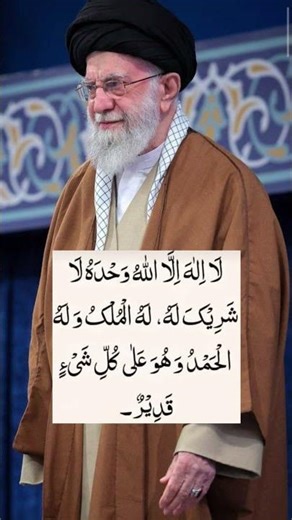 لَا اِلٰهَ اِلَّا اللّٰهُ وَحْدَهٗ لَا
شَرِيْكَ لَهٗ، لَهُ الْمُلْكُ وَ لَهُ
الْحَمْدُ وَ هُوَ عَلٰى كُلِّ شَیْءٍ
قَدِيْرٌ۔